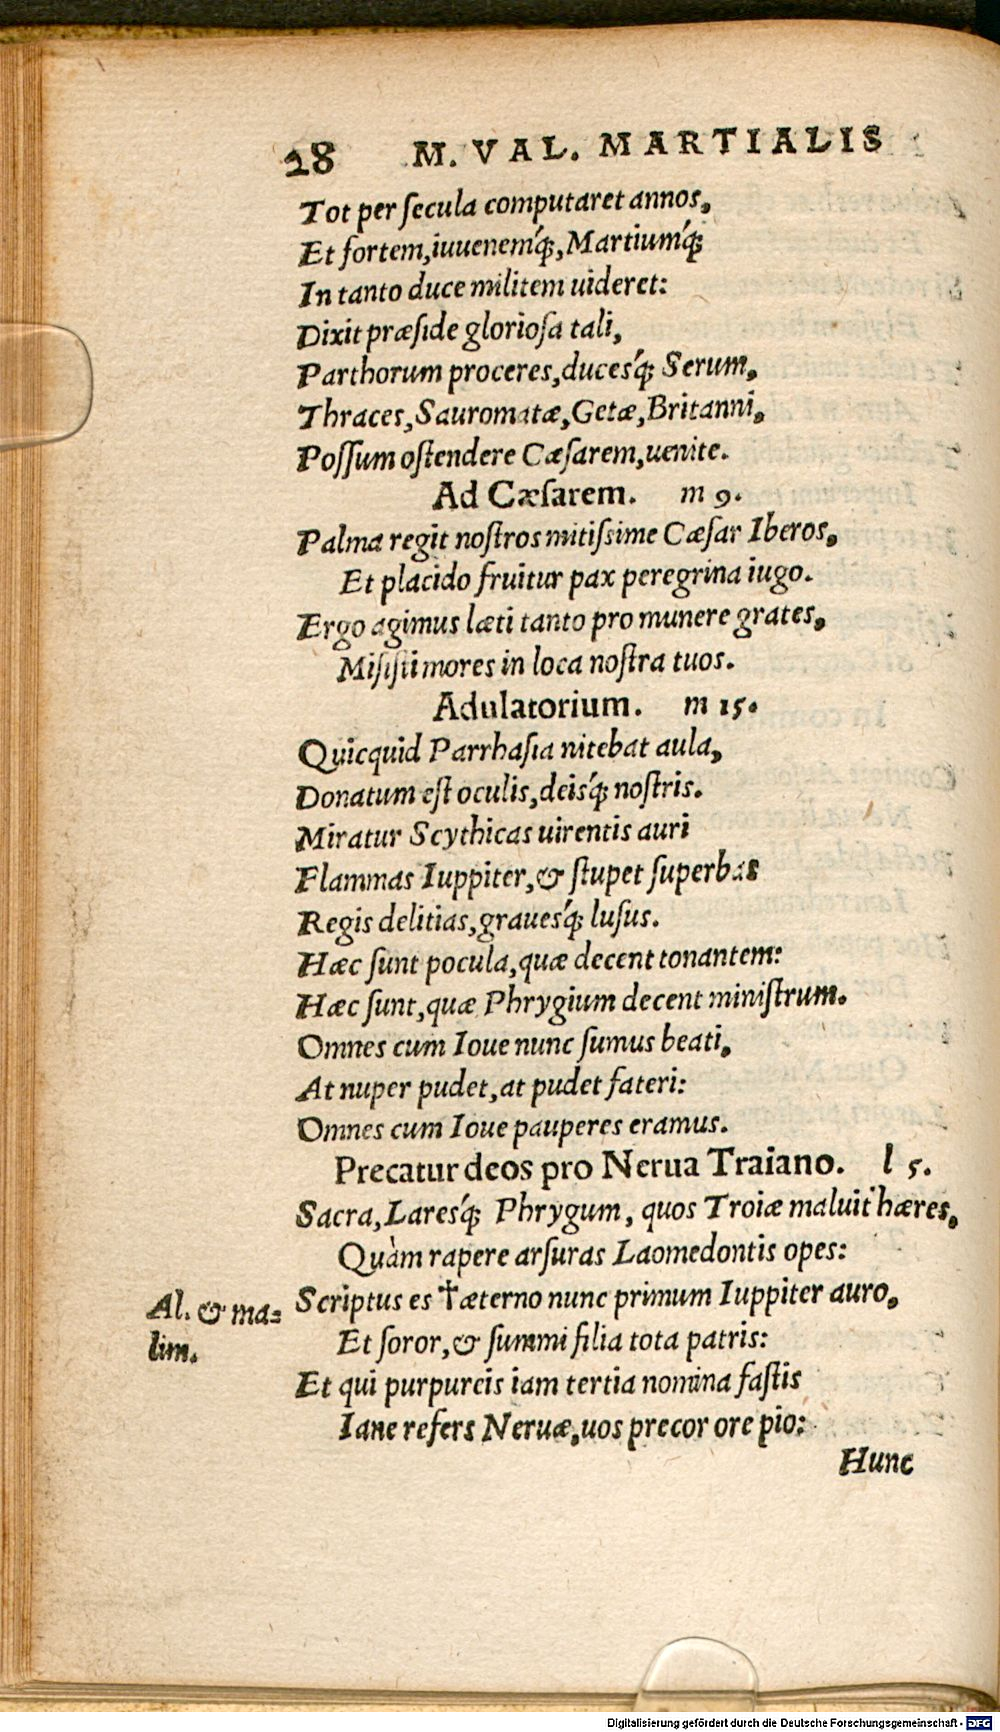 28 M. VAL. MARTIALIS
Tot per ſecula computaret annos,
Et fortem, iuuenemq́;, Martiumq́;
In tanto duce militem uideret:
Dixit præſide glorioſa tali,
Parthorum proceres, duceſq́; Serum,
Thraces, Sauromatæ, Getæ, Britanni,
Poſſum oſtendere Cæſarem, uenite.
Ad Cæſarem. m 9.
Palma regit noſtros mitiſsime Cæſar Iberos,
Et placido fruitur pax peregrina iugo.
Ergo agimus læti tanto pro munere grates,
Miſiſti mores in loca noſtra tuos.
Adulatorium. m 15.
Quicquid Parrhaſia nitebat aula,
Donatum eſt oculis, deisq́; noſtris.
Miratur Scythicas uirentis auri
Flammas Iuppiter, & ſtupet ſuperbas
Regis delitias, grauesq́; luſus.
Hæc ſunt pocula, quæ decent tonantem:
Hæc ſunt, quæ Phrygium decent miniſtrum.
Omnes cum Ioue nunc ſumus beati,
At nuper pudet, at pudet fateri:
Omnes cum Ioue pauperes eramus.
Precatur deos pro Nerua Traiano. l 5.
Sacra, Laresq́; Phrygum, quos Troiæ maluit hæres,
Quàm rapere arſuras Laomedontis opes:
Scriptus es †æterno nunc primum Iuppiter auro,
Al. & ma=
lim.
Et ſoror, & ſummi filia tota patris:
Et qui purpureis iam tertia nomina faſtis
Iane refers Neruæ, uos precor ore pio:
Hunc
Digitalisierung gefördert durch die Deutsche Forschungsgemeinschaft - DFG